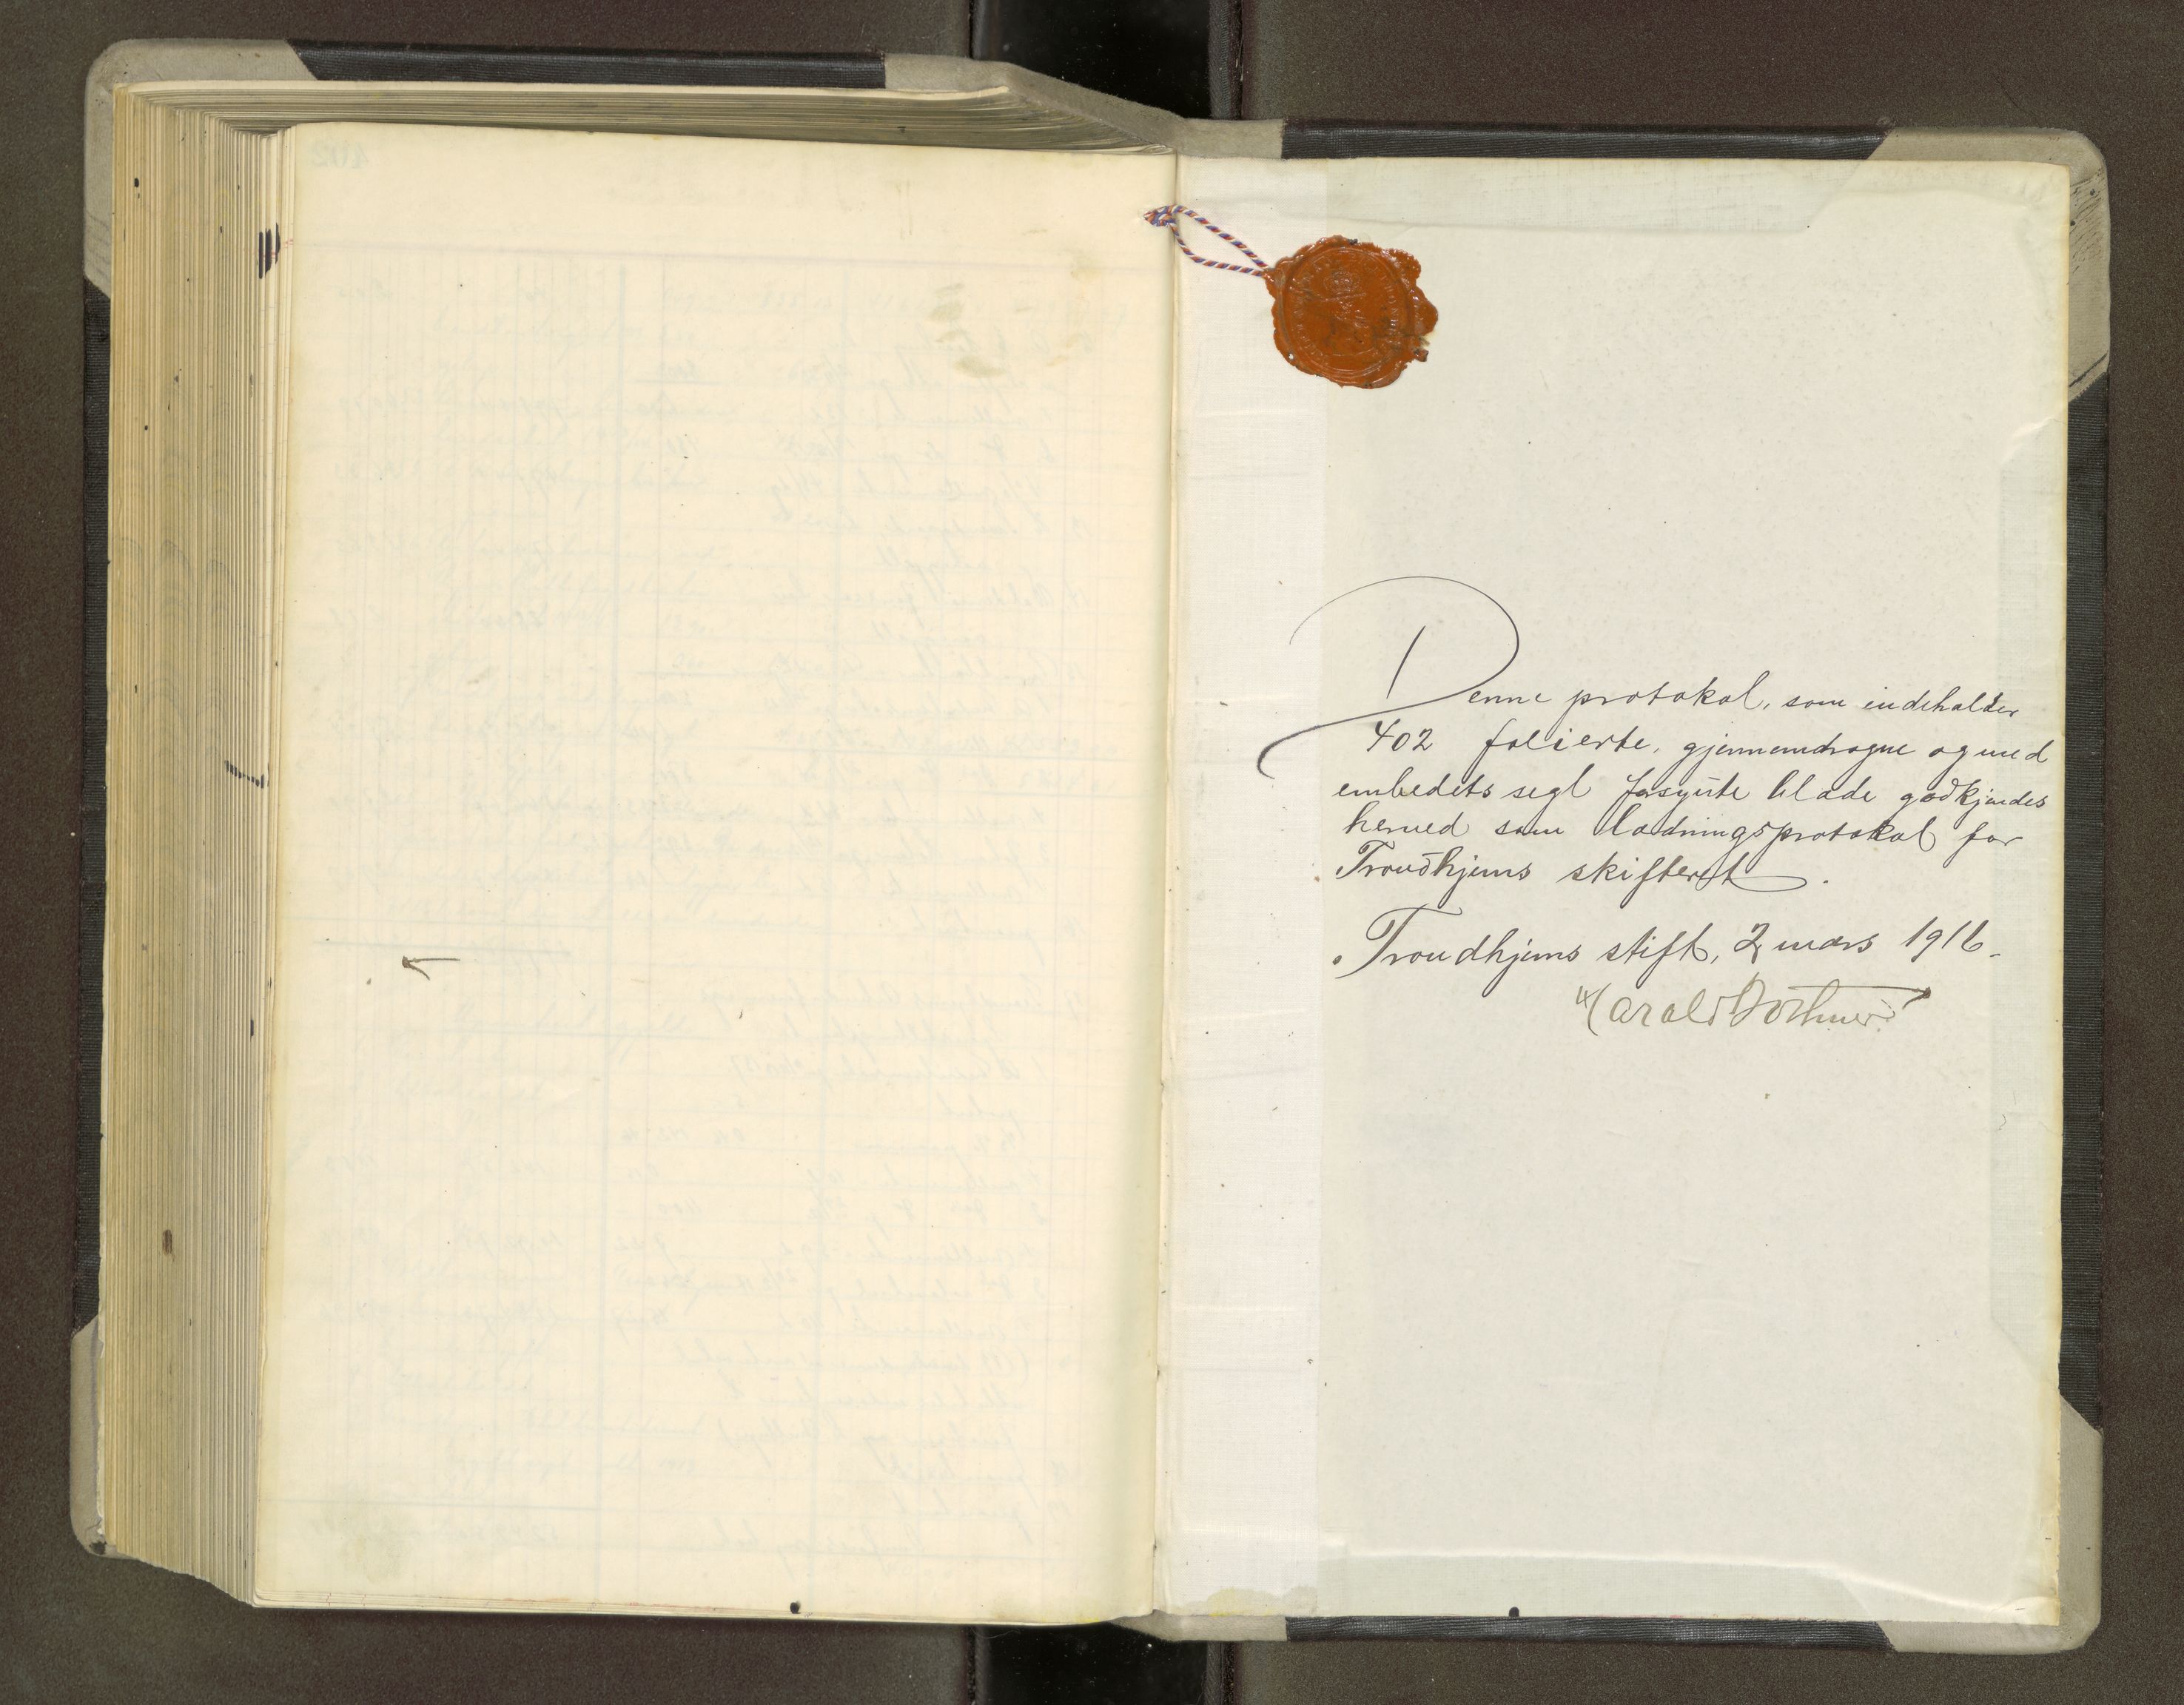 Denne protokol, som indeholder
402 folierte, gjennemdragne og med
embedets segl forsynte blade godkjendes
herved som lodningsprotokol for
Trondhjems skifteret.
Trondhjems stift, 2 mars 1916.
Harald Bothner